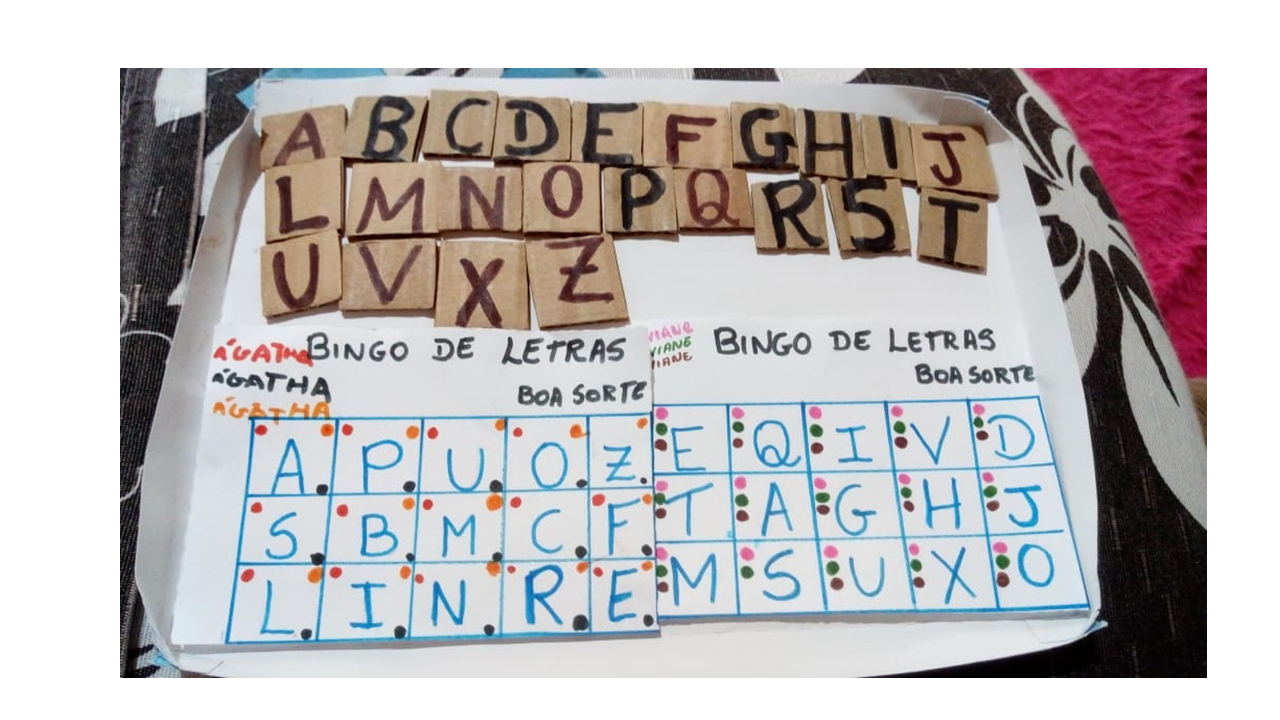 A B C D E F G H I J
L M N O P Q R S T
U V X Z
ÁGATHA BINGO DE LETRAS
ÁGATHA
ÁGATHA
BOA SORTE
A P U O Z
S B M C F
L I N R E
VIANE BINGO DE LETRAS
VIANE
VIANE
BOA SORTE
E Q I V D
T A G H J
M S U X O